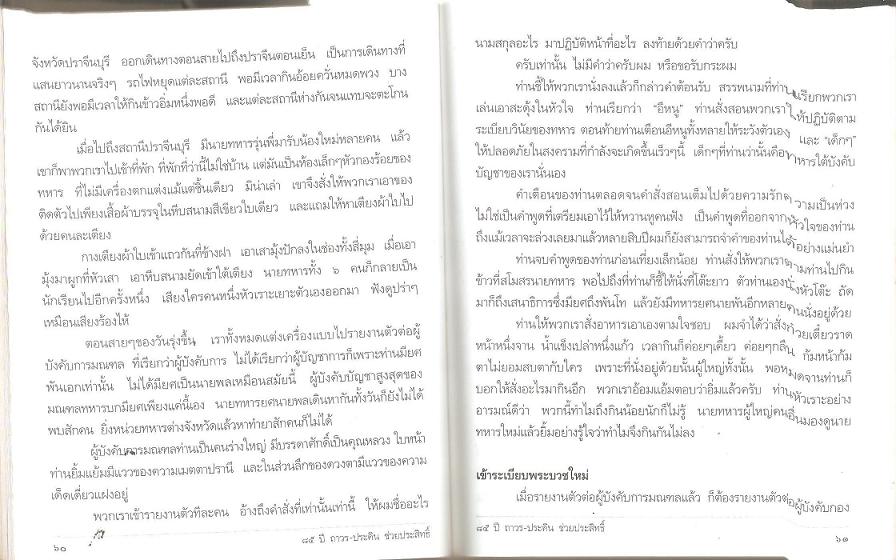 จังหวัดปราจีนบุรี ออกเดินทางตอนสายไปถึงปราจีนตอนเย็น เป็นการเดินทางที่
แสนยาวนานจริงๆ รถไฟหยุดแต่ละสถานี พอมีเวลากินอ้อยควั่นหมดพวง บาง
สถานียังพอมีเวลาให้กินข้าวอิ่มหนึ่งพอดี และแต่ละสถานีห่างกันจนแทบจะตะโกน
กันได้ยิน
เมื่อไปถึงสถานีปราจีนบุรี มีนายทหารรุ่นพี่มารับน้องใหม่หลายคน แล้ว
เขาก็พาพวกเราไปเข้าที่พัก ที่พักที่ว่านี้ไม่ใช่บ้าน แต่มันเป็นห้องเล็กๆหัวกองร้อยของ
ทหาร ที่ไม่มีเครื่องตกแต่งแม้แต่ชิ้นเดียว มิน่าเล่า เขาจึงสั่งให้พวกเราเอาของ
ติดตัวไปเพียงเสื้อผ้าบรรจุในหีบสนามสีเขียวใบเดียว และแถมให้หาเตียงผ้าใบไป
ด้วยคนละเตียง
กางเตียงผ้าใบเข้าแถวกันที่ข้างฝา เอาเสามุ้งปักลงในช่องทั้งสี่มุม เมื่อเอา
มุ้งมาผูกที่หัวเสา เอาหีบสนามยัดเข้าใต้เตียง นายทหารทั้ง ๖ คนก็กลายเป็น
นักเรียนไปอีกครั้งหนึ่ง เสียงใครคนหนึ่งหัวเราะเยาะตัวเองออกมา ฟังดูปร่าๆ
เหมือนเสียงร้องไห้
ตอนสายๆของวันรุ่งขึ้น เราทั้งหมดแต่งเครื่องแบบไปรายงานตัวต่อผู้
บังคับการมณฑล ที่เรียกว่าผู้บังคับการ ไม่ได้เรียกว่าผู้บัญชาการก็เพราะท่านมียศ
พันเอกเท่านั้น ไม่ได้มียศเป็นนายพลเหมือนสมัยนี้ ผู้บังคับบัญชาสูงสุดของ
มณฑลทหารบกมียศเพียงแค่นี้เอง นายทหารยศนายพลเดินหากันทั้งวันก็ยังไม่ได้
พบสักคน ยิ่งหน่วยทหารต่างจังหวัดแล้วหาทำยาสักคนก็ไม่ได้
ผู้บังคับการมณฑลท่านเป็นคนร่างใหญ่ มีบรรดาศักดิ์เป็นคุณหลวง ใบหน้า
ท่านยิ้มแย้มมีแววของความเมตตาปรานี และในส่วนลึกของดวงตามีแววของความ
เด็ดเดี่ยวแฝงอยู่
พวกเราเข้ารายงานตัวทีละคน อ้างถึงคำสั่งที่เท่านั้นเท่านี้ ให้ผมชื่ออะไร
๖๐
๘๕ ปี ถาวร-ประคิน ช่วยประสิทธิ์
นามสกุลอะไร มาปฏิบัติหน้าที่อะไร ลงท้ายด้วยคำว่าครับ
ครับเท่านั้น ไม่มีคำว่าครับผม หรือขอรับกระผม
ท่านชี้ให้พวกเรานั่งลงแล้วก็กล่าวคำต้อนรับ สรรพนามที่ท่านเรียกพวกเรา
เล่นเอาสะดุ้งในหัวใจ ท่านเรียกว่า "อีหนู" ท่านสั่งสอนพวกเราให้ปฏิบัติตาม
ระเบียบวินัยของทหาร ตอนท้ายท่านเตือนอีหนูทั้งหลายให้ระวังตัวเอง และ "เด็กๆ"
ให้ปลอดภัยในสงครามที่กำลังจะเกิดขึ้นเร็วๆนี้ เด็กๆที่ท่านว่านั้นคือทหารใต้บังคับ
บัญชาของเรานั่นเอง
คำเตือนของท่านตลอดจนคำสั่งสอนเต็มไปด้วยความรักความเป็นห่วง
ไม่ใช่เป็นคำพูดที่เตรียมเอาไว้ให้หวานหูคนฟัง เป็นคำพูดที่ออกจากหัวใจของท่าน
ถึงแม้เวลาจะล่วงเลยมาแล้วหลายสิบปีผมก็ยังสามารถจำคำของท่านได้อย่างแม่นยำ
ท่านจบคำพูดของท่านก่อนเที่ยงเล็กน้อย ท่านสั่งให้พวกเราตามท่านไปกิน
ข้าวที่สโมสรนายทหาร พอไปถึงที่ท่านก็ชี้ให้นั่งที่โต๊ะยาว ตัวท่านเองนั่งหัวโต๊ะ ถัด
มาก็ถึงเสนาธิการซึ่งมียศถึงพันโท แล้วยังมีทหารยศนายพันอีกหลายคนนั่งอยู่ด้วย
ท่านให้พวกเราสั่งอาหารเอาเองตามใจชอบ ผมจำได้ว่าสั่งก๋วยเตี๋ยวราด
หน้าหนึ่งจาน น้ำแข็งเปล่าหนึ่งแก้ว เวลากินก็ค่อยๆเคี้ยว ค่อยๆกลืน ก้มหน้าก้ม
ตาไม่ยอมสบตากับใคร เพราะที่นั่งอยู่ด้วยนั้นผู้ใหญ่ทั้งนั้น พอหมดจานท่านก็
บอกให้สั่งอะไรมากินอีก พวกเราอ้อมแอ้มตอบว่าอิ่มแล้วครับ ท่านหัวเราะอย่าง
อารมณ์ดีว่า พวกนี้ทำไมถึงกินน้อยนักก็ไม่รู้ นายทหารผู้ใหญ่คนอื่นมองดูนาย
ทหารใหม่แล้วยิ้มอย่างรู้ใจว่าทำไมจึงกินกันไม่ลง
เข้าระเบียบพระบวชใหม่
เมื่อรายงานตัวต่อผู้บังคับการมณฑลแล้ว ก็ต้องรายงานตัวต่อผู้บังคับกอง
๘๕ ปี ถาวร-ประคิน ช่วยประสิทธิ์
๖๑